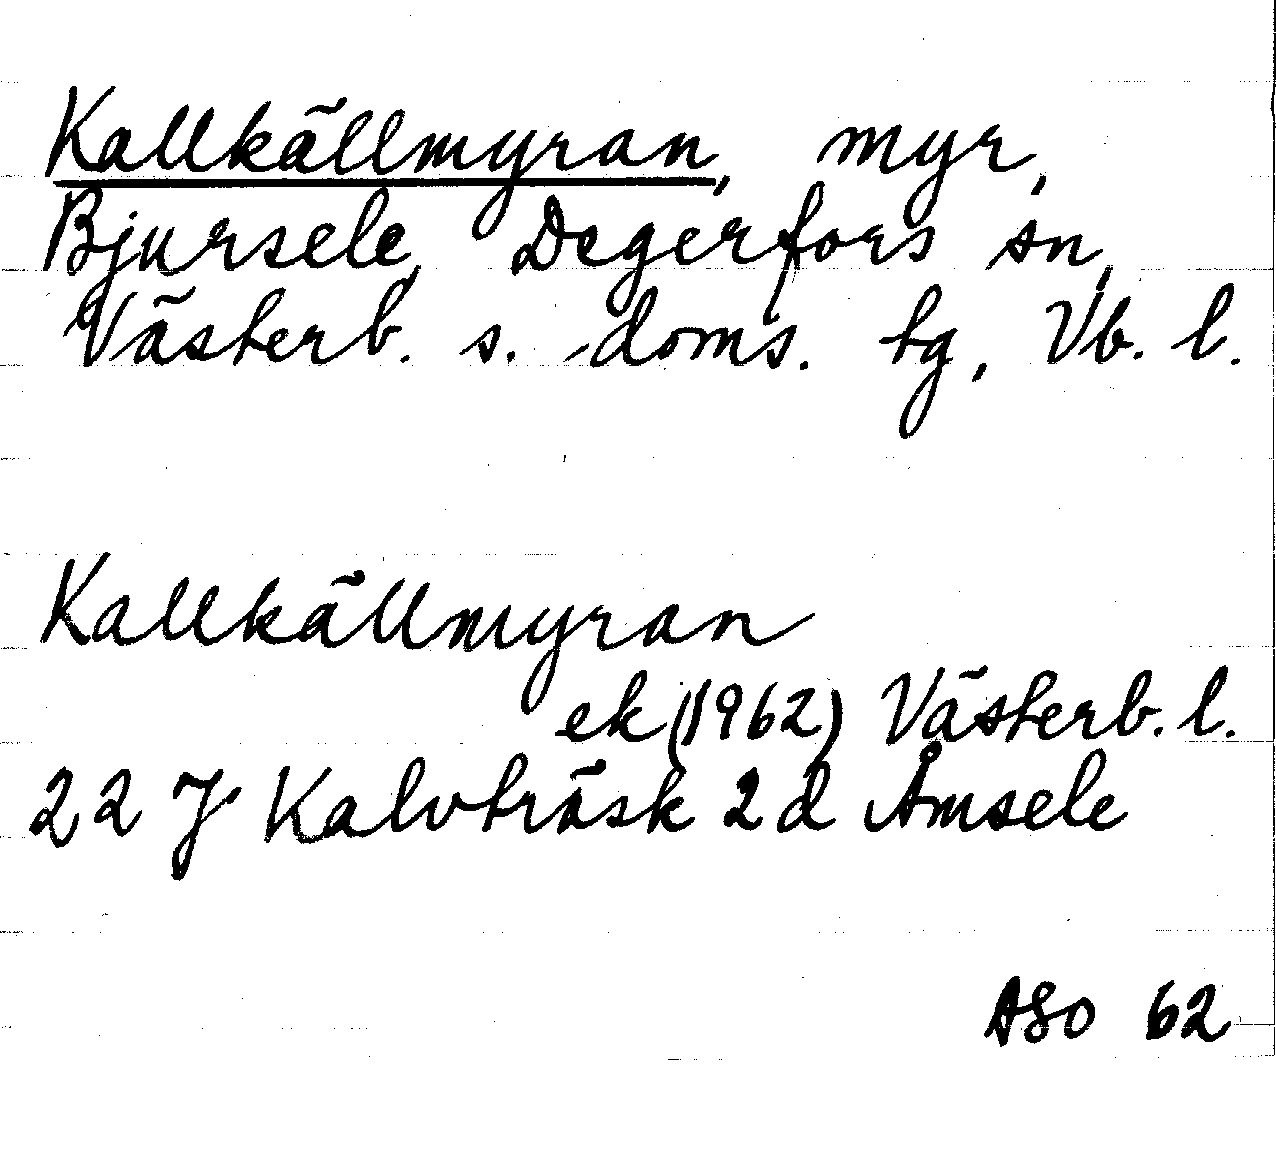 Kallkällmyran, myr,
Bjursele, Degerfors sn,
Västerb. s. doms. tg, Vb. l.
Kallkällmyran
ek (1962) Västerb. l.
22 J Kalvträsk 2 d Åmsele
ASO 62